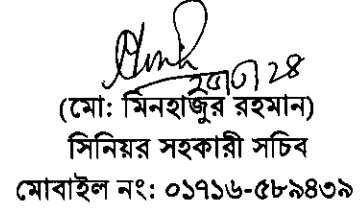 (মো: মিনহাজুর রহমান)
সিনিয়র সহকারী সচিব
মোবাইল নং: ০১৭১৬-৫৮৯৪৩৯